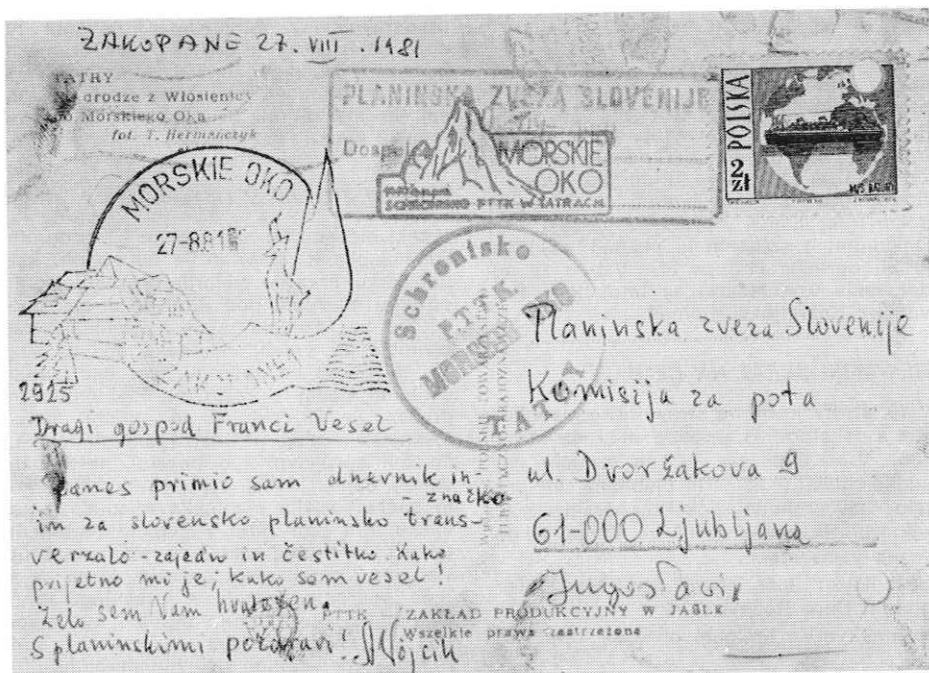 ZAKOPANE 27. VIII. 1981
TATRY
drodze z Włosienicy
do Morskiego Oka
fot. T. Hermańczyk
PLANINSKA ZVEZA SLOVENIJE
MORSKIE
OKO
SCHRONISKO PTTK W TATRACH
POLSKA
2 zł
MORSKIE OKO
27-8.81
ZAKOPANE 1
Schronisko
P.T.T.K.
MORSKIE OKO
TATRY
2925
Dragi gospod Franci Vesel
Danes primio sam dnevnik in
- značko
in za slovensko planinsko trans-
verzalo - zajedno in čestitko. Kako
prijetno mi je, kako sem vesel!
Zelo sem Vam hvaležen.
S planinskimi pozdravi! Wójcik
Planinska zveza Slovenije
Komisija za pota
ul. Dvoržakova 9
61-000 Ljubljana
Jugoslavia
PTTK ZAKŁAD PRODUKCYJNY W JAŚLE
Wszelkie prawa zastrzeżone